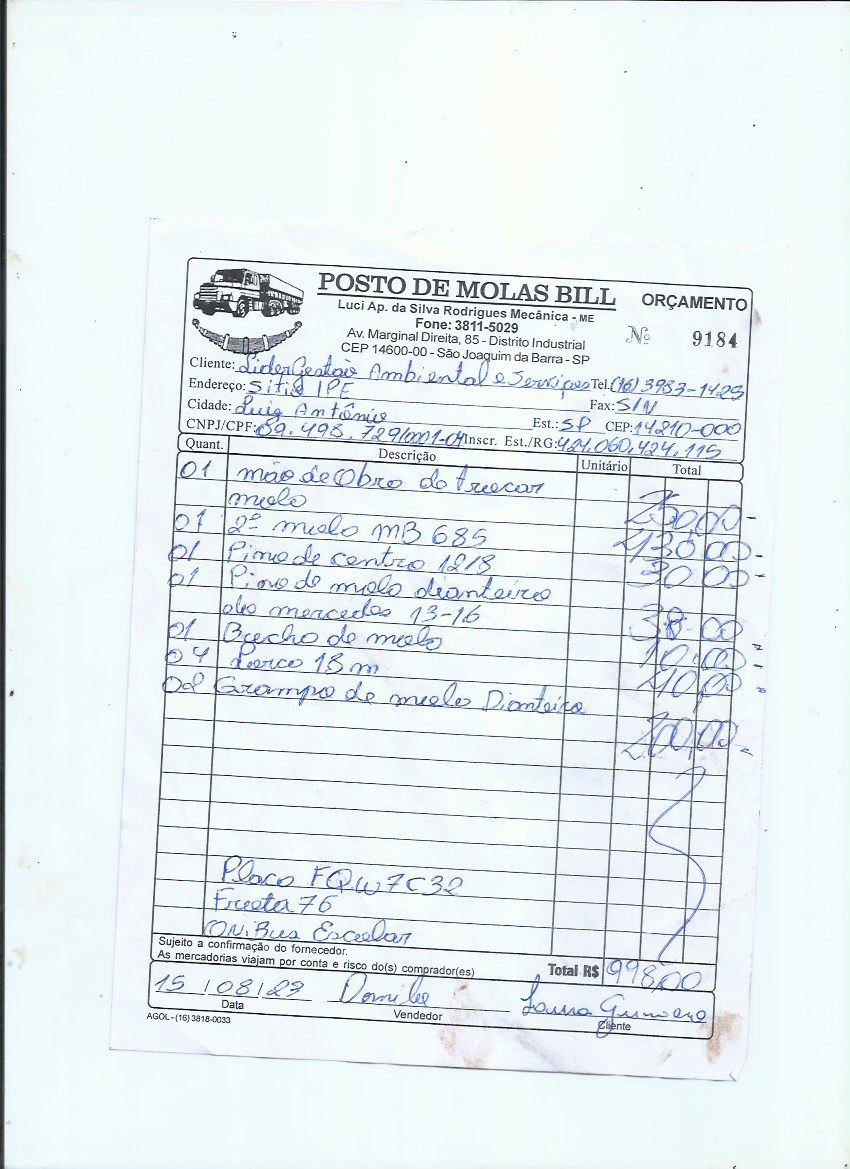 POSTO DE MOLAS BILL
ORÇAMENTO
Luci Ap. da Silva Rodrigues Mecânica - ME
Fone: 3811-5029
Nº 9184
Av. Marginal Direita, 85 - Distrito Industrial
CEP 14600-00 - São Joaquim da Barra - SP
Cliente: Lider Gestão Ambiental e Serviços Tel. (16) 3983-1425
Endereço: Sitio IPE Fax: S/N
Cidade: Luiz Antônio Est.: SP CEP: 14210-000
CNPJ/CPF: 09.498.729/0001-04 Inscr. Est./RG: 424.060.424.115
Quant. Descrição Unitário Total
01 mão de Obra de trocar
mola 250,00-
01 2ª mola MB 685 430 00-
01 Pino de centro 12/8 30 00-
01 Pino de mola dianteira
da mercedes 13-16 38-00
01 Bucha de mola 10,00-
04 Porca 18 m 40,00
02 Grampo de mola Dianteira
200,00-
Placa FQW7C32
Frota 76
ONiBus Escolar
Sujeito a confirmação do fornecedor.
As mercadorias viajam por conta e risco do(s) comprador(es)
Total R$ 998,00
15 / 08 / 23
Data Vendedor Cliente
AGOL - (16) 3818-0033